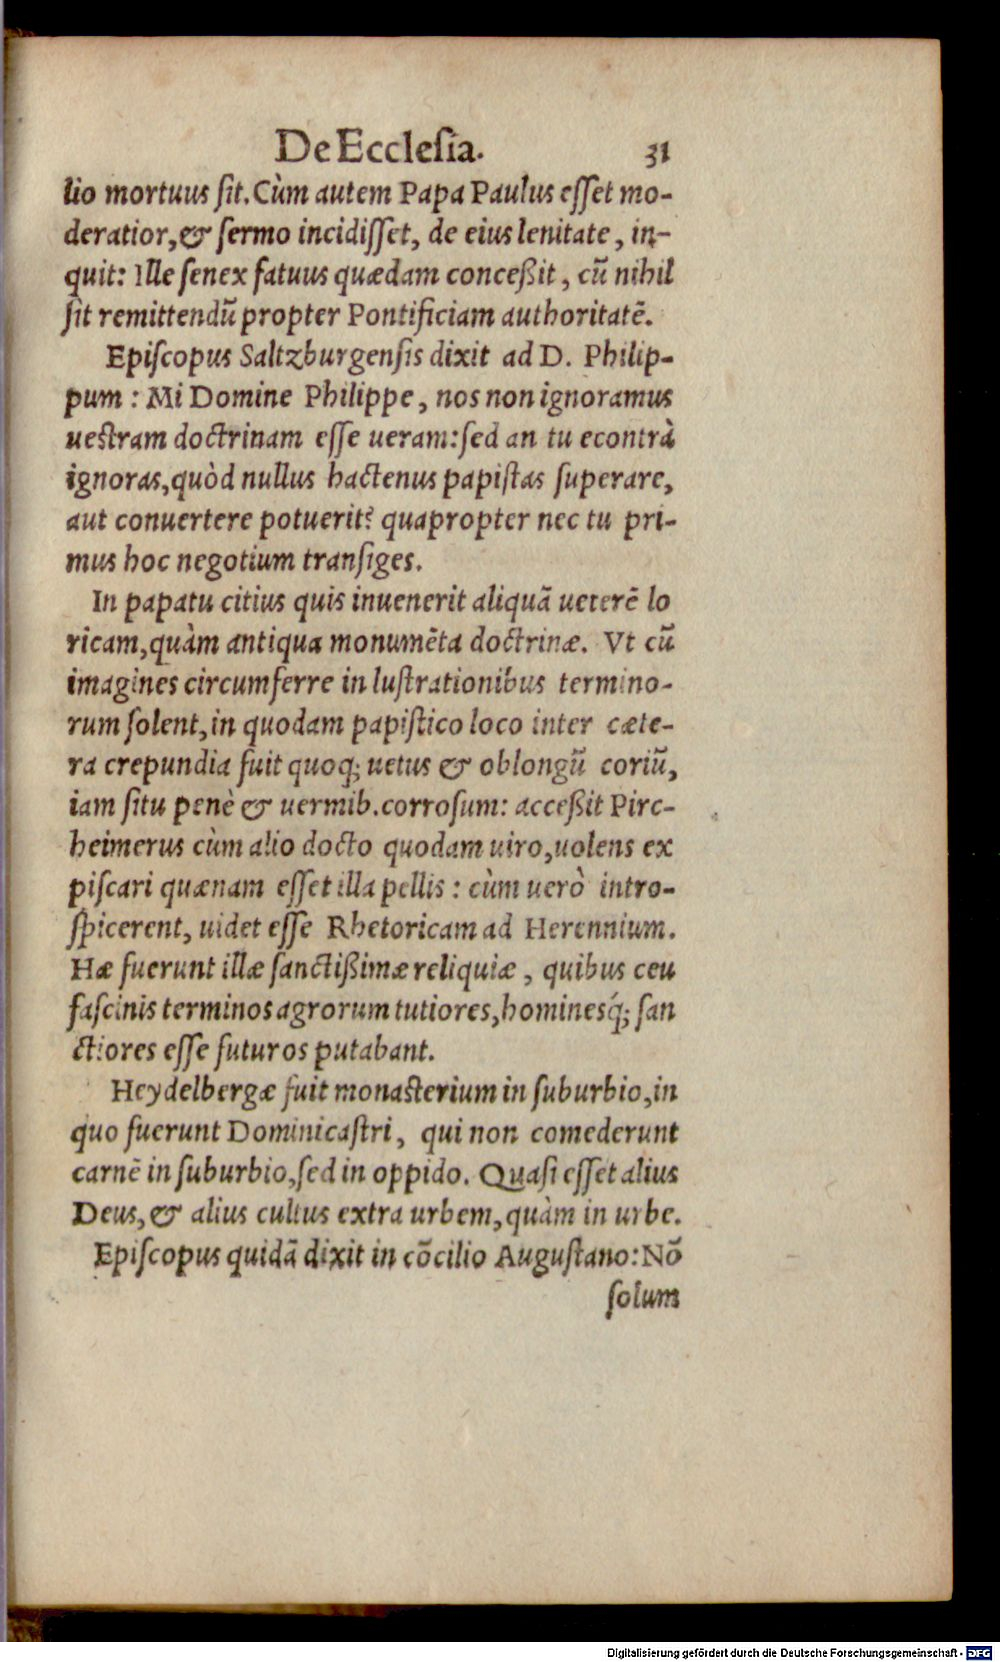 De Ecclesia. 31
lio mortuus sit. Cùm autem Papa Paulus esset mo-
deratior, & sermo incidisset, de eius lenitate, in-
quit: Ille senex fatuus quædam conceßit, cū nihil
sit remittendū propter Pontificiam authoritatē.
Episcopus Saltzburgensis dixit ad D. Philip-
pum: Mi Domine Philippe, nos non ignoramus
uestram doctrinam esse ueram: sed an tu econtrà
ignoras, quòd nullus hactenus papistas superare,
aut conuertere potuerit? quapropter nec tu pri-
mus hoc negotium transiges.
In papatu citius quis inuenerit aliquã ueterē lo
ricam, quàm antiqua monumēta doctrinæ. Vt cū
imagines circumferre in lustrationibus termino-
rum solent, in quodam papistico loco inter cæte-
ra crepundia fuit quoq; uetus & oblongū coriū,
iam situ penè & uermib. corrosum: acceßit Pirc-
heimerus cùm alio docto quodam uiro, uolens ex
piscari quænam esset illa pellis: cùm uerò intro-
spicerent, uidet esse Rhetoricam ad Herennium.
Hæ fuerunt illæ sanctißimæ reliquiæ, quibus ceu
fascinis terminos agrorum tutiores, hominesq́; san
ctiores esse futuros putabant.
Heydelbergæ fuit monasterium in suburbio, in
quo fuerunt Dominicastri, qui non comederunt
carnē in suburbio, sed in oppido. Quasi esset alius
Deus, & alius cultus extra urbem, quàm in urbe.
Episcopus quidã dixit in cõcilio Augustano: Nõ
solum
Digitalisierung gefördert durch die Deutsche Forschungsgemeinschaft - DFG